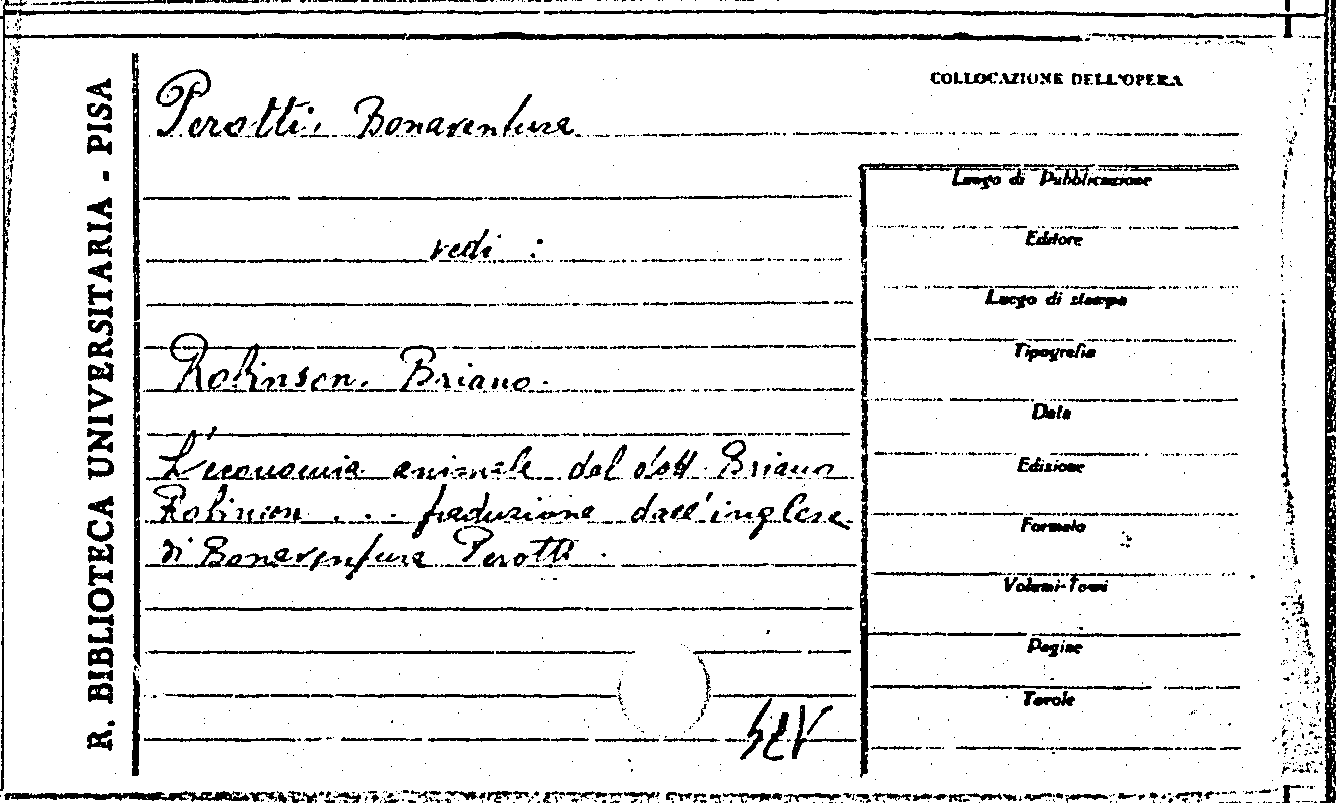 R. BIBLIOTECA UNIVERSITARIA - PISA
COLLOCAZIONE DELL'OPERA
Perotti, Bonaventura
vedi :
Robinson, Briano.
L'economia animale del dott. Briano
Robinson ... traduzione dall'inglese
di Bonaventura Perotti.
Luogo di Pubblicazione
Editore
Luogo di stampa
Tipografia
Data
Edizione
Formato
Volumi-Tomi
Pagine
Tavole